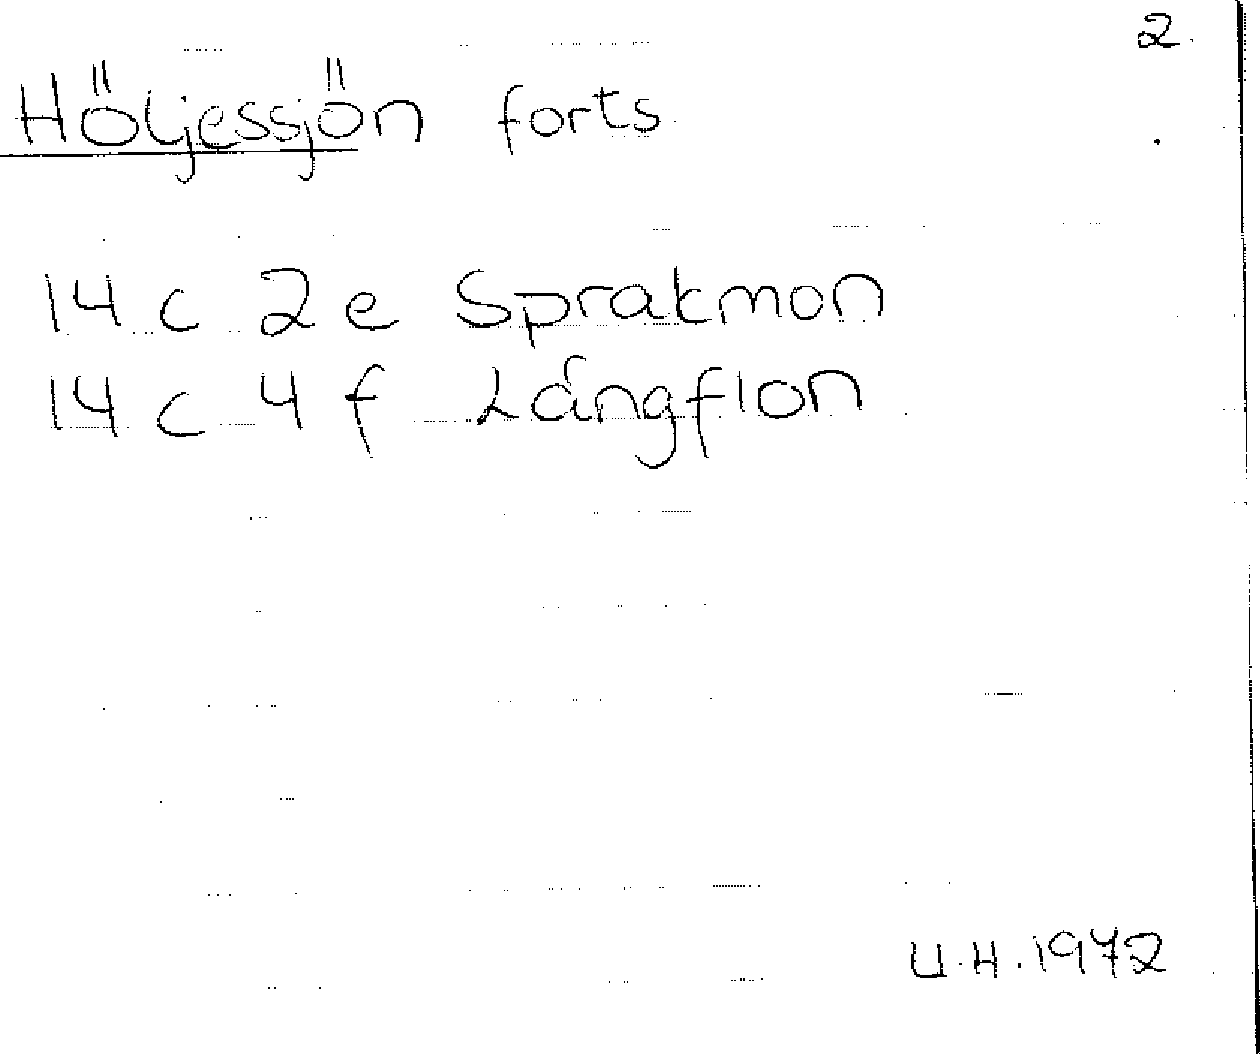 2.
Höljessjön forts
14 c 2e Sprakmon
14 c 4 f Långflon
U.H. 1972